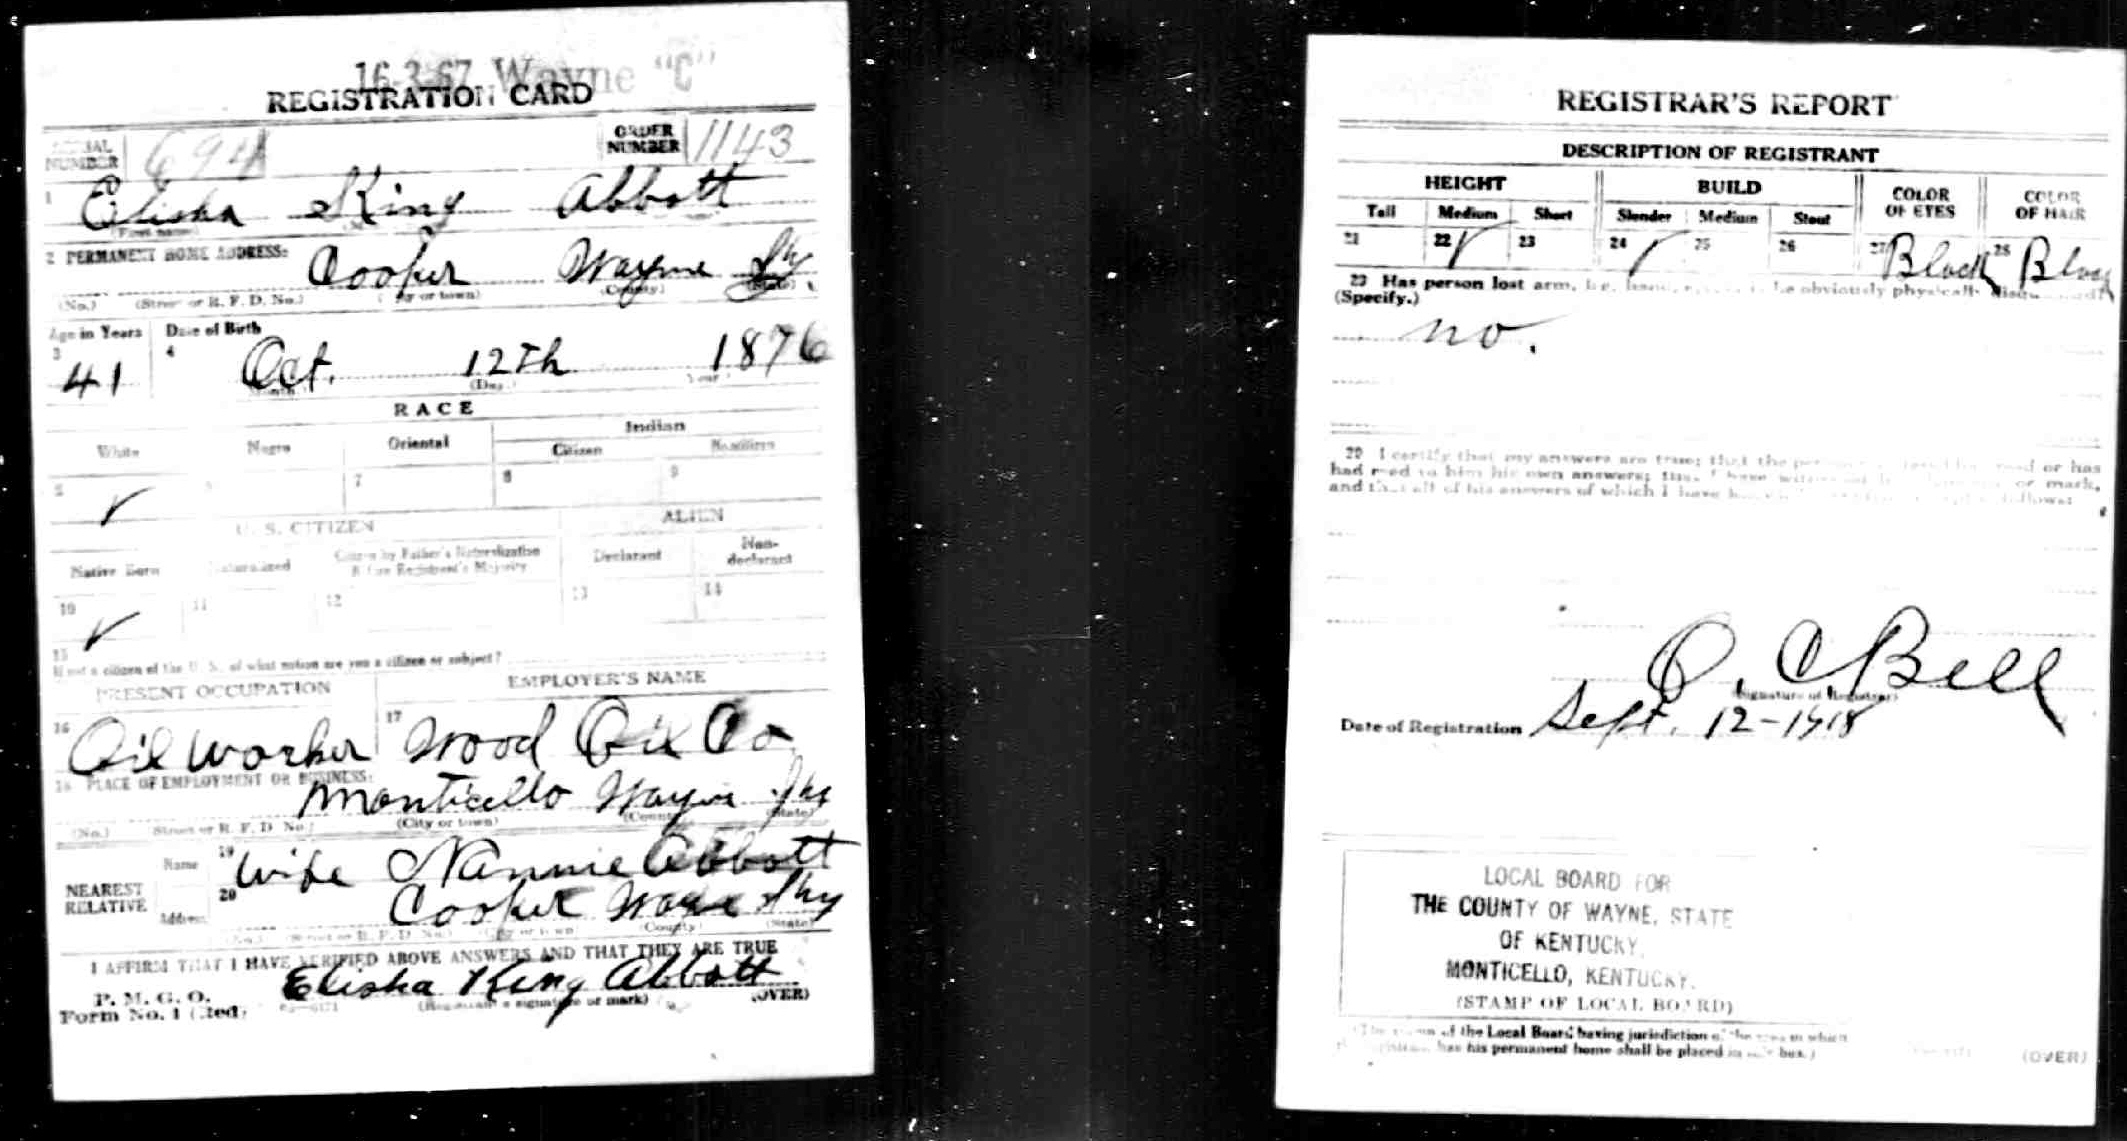 16-3-67 Wayne "C"
REGISTRATION CARD
SERIAL NUMBER 694 ORDER NUMBER 1143
1 Elisha King Abbott
(First name)
2 PERMANENT HOME ADDRESS:
Cooper Wayne Ky.
(No.) (Street or R. F. D. No.) (City or town) (County) (State)
Age in Years Date of Birth
3 4
41 Oct. 12Th 1876
(Month) (Day) (Year)
RACE
White Negro Oriental Indian
Citizen Noncitizen
5 7 8 9
✓
U. S. CITIZEN ALIEN
Native Born Naturalized Citizen by Father's Naturalization Before Registrant's Majority Declarant Non-declarant
10 11 12 13 14
✓
15
If not a citizen of the U. S., of what nation are you a citizen or subject?
PRESENT OCCUPATION EMPLOYER'S NAME
16 17
Oil Worker Wood Oil Co
18 PLACE OF EMPLOYMENT OR BUSINESS:
Monticello Wayne Ky
(No.) (Street or R. F. D. No.) (City or town) (County) (State)
NEAREST RELATIVE
Name 19 Wife Nannie Abbott
Address 20 Cooper Wayne Ky
(No.) (Street or R. F. D. No.) (City or town) (County) (State)
I AFFIRM THAT I HAVE VERIFIED ABOVE ANSWERS AND THAT THEY ARE TRUE
P. M. G. O.
Form No. 1 (Red) Elisha King Abbott
(Registrant's signature or mark) (OVER)
REGISTRAR'S REPORT
DESCRIPTION OF REGISTRANT
HEIGHT BUILD COLOR OF EYES COLOR OF HAIR
Tall Medium Short Slender Medium Stout
21 22 ✓ 23 24 ✓ 25 26 27 Black 28 Black
29 Has person lost arm, leg, hand, eye, or is he obviously physically disqualified?
(Specify.)
no.
30 I certify that my answers are true; that the person registered has read or has
had read to him his own answers; that I have witnessed his signature or mark,
and that all of his answers of which I have knowledge are true, except as follows:
O. C Bell
(Signature of Registrar)
Date of Registration Sept. 12-1918
LOCAL BOARD FOR
THE COUNTY OF WAYNE, STATE
OF KENTUCKY,
MONTICELLO, KENTUCKY.
(STAMP OF LOCAL BOARD)
(The stamp of the Local Board having jurisdiction of the area in which
the registrant has his permanent home shall be placed in this box.)
(OVER)